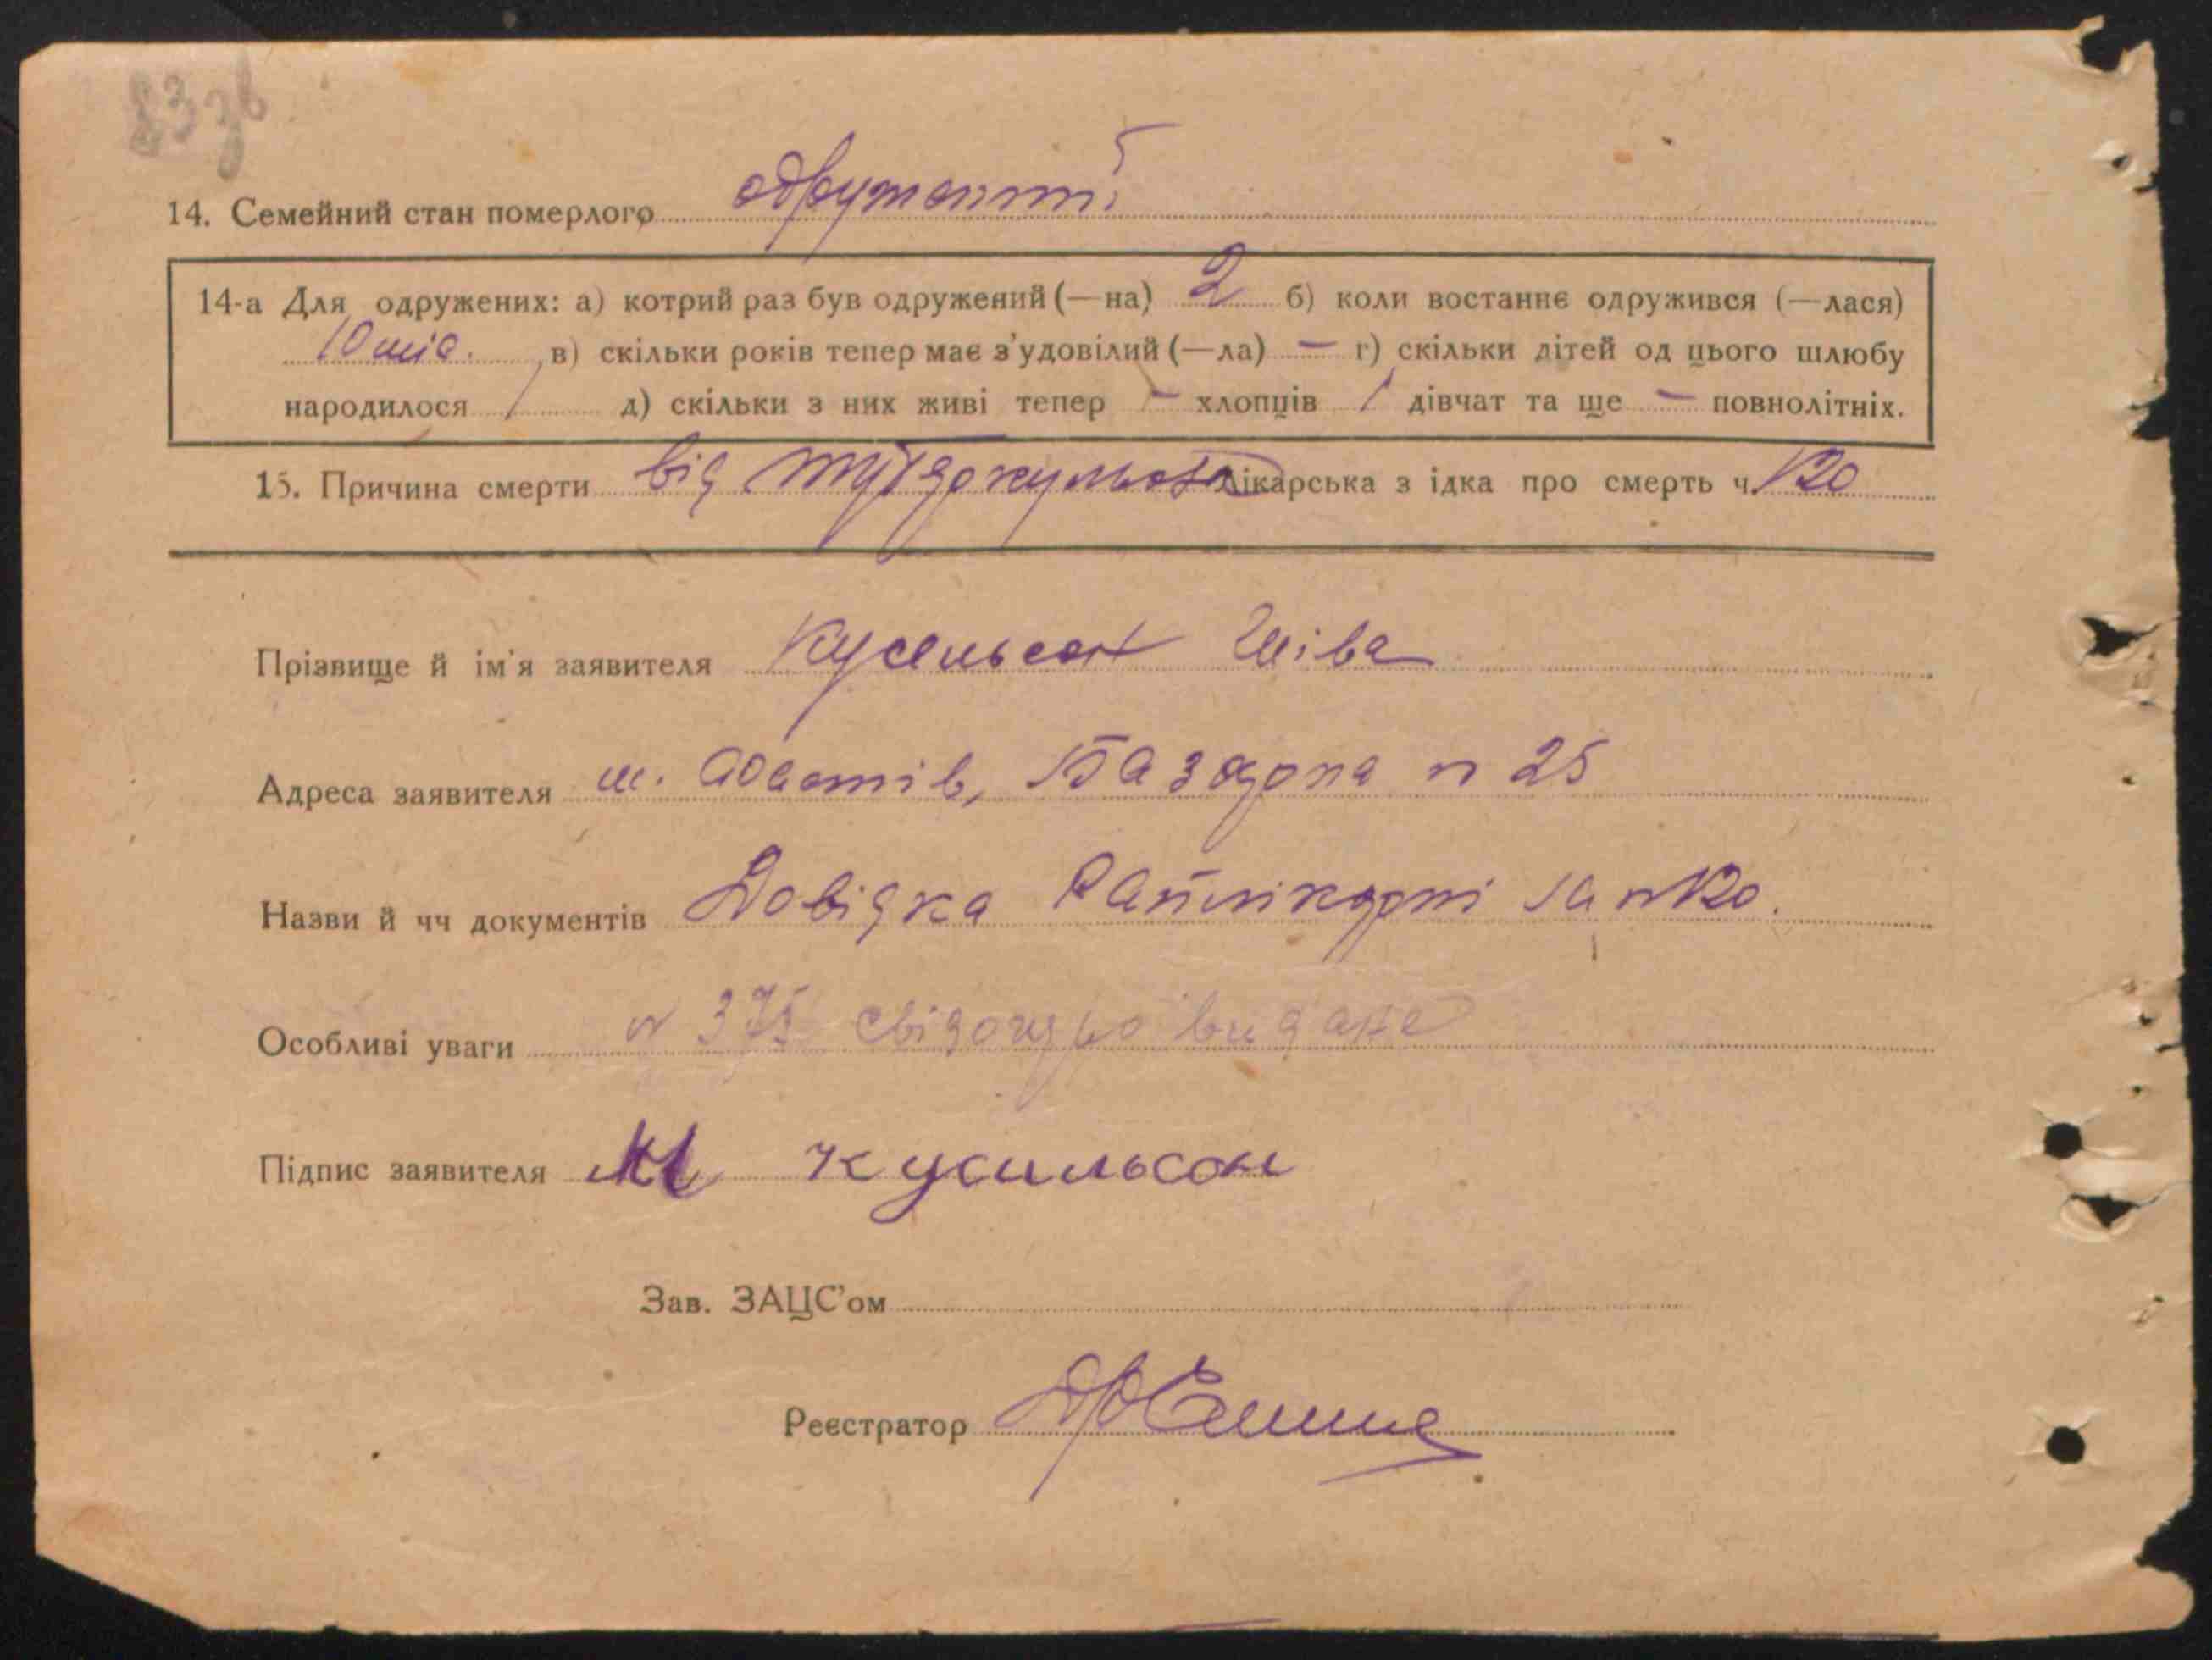 83 зв
14. Семейний стан померлого одружений
14-а Для одружених: а) котрий раз був одружений (—на) 2 б) коли востаннє одружився (—лася)
10 в) скільки років тепер має з'удовілий (—ла) — г) скільки дітей од цього шлюбу
народилося 1 д) скільки з них живі тепер — хлопців 1 дівчат та ще — повнолітніх.
15. Причина смерти від туберкульоза Лікарська з ідка про смерть ч. 120
Прізвище й ім'я заявителя Кусельсон
Адреса заявителя м. Фастів, Базарна n 25
Назви й чч документів Довідка Райлікарні за n 120.
Особливі уваги n 375 свідоцтво видане
Підпис заявителя Кусильсон
Зав. ЗАЦС'ом
Реєстратор